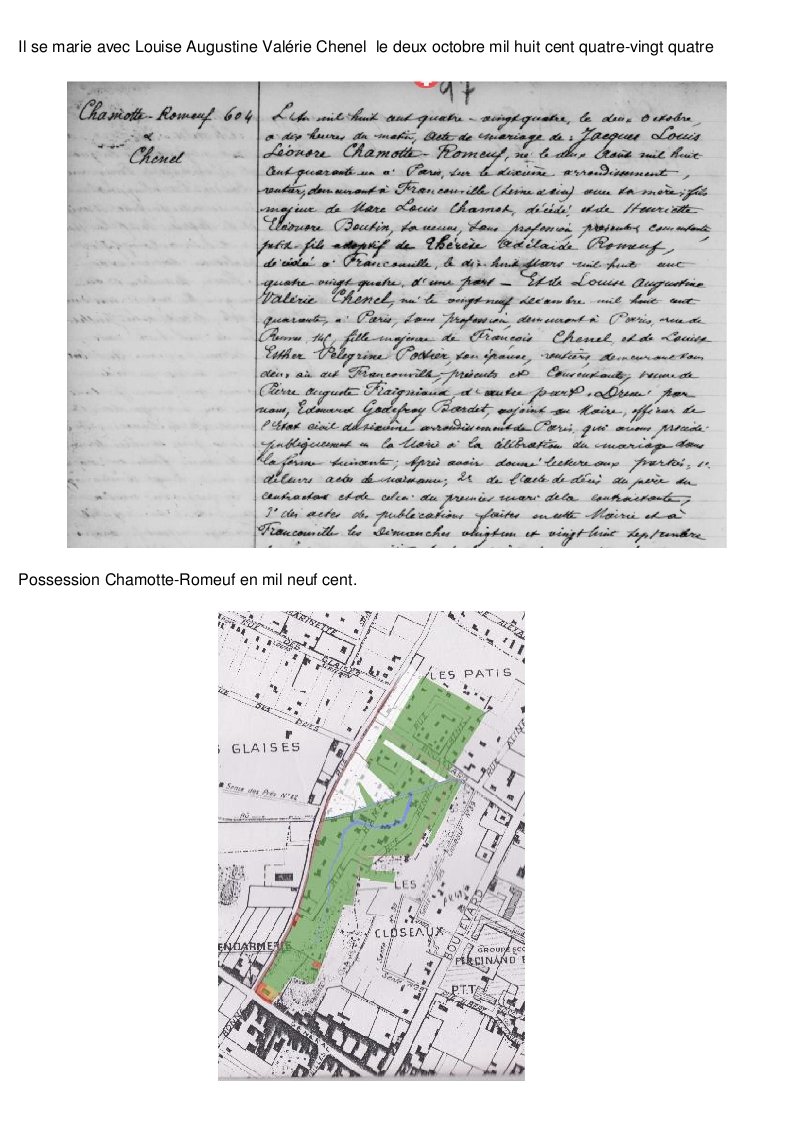 Il se marie avec Louise Augustine Valérie Chenel le deux octobre mil huit cent quatre-vingt quatre
97
Chamotte-Romeuf 604
&
Chenel
L'An mil huit cent quatre-vingt quatre, le deux Octobre,
a dix heures du matin, acte de mariage de : Jacques Louis
Léonore Chamotte-Romeuf, né le deux Août mil huit
cent quarante un à Paris, sur le dixième arrondissement,
rentier, demeurant à Franconville (Seine & Oise) avec sa mère ; fils
majeur de Marc Louis Chamot, décédé, et de Henriette
Eléonore Boutin, sa veuve, sans profession présente, consentante,
petit-fils adoptif de Thérèse Adélaïde Romeuf,
décédée à Franconville, le dix huit Mars mil huit cent
quatre vingt quatre, d'une part — Et de Louise Augustine
Valérie Chenel, née le vingt neuf Décembre mil huit cent
quarante, à Paris, sans profession, demeurant à Paris, rue de
Rennes, 145, fille majeure de François Chenel, et de Louise
Esther Pelegrine Potier son épouse, rentiers demeurant tous
deux au dit Franconville, présents et consentants, veuve de
Pierre Auguste Fraigniaud d'autre part. Dressé par
nous, Edouard Godefroy Bardet, adjoint au Maire, officier de
l'Etat civil du sixième arrondissement de Paris, qui avons procédé
publiquement en la Mairie à la célébration du mariage dans
la forme suivante ; Après avoir donné lecture aux parties, 1°
de leurs actes de naissance ; 2° de l'acte de décès du père du
contractant et de celui du premier mari de la contractante ;
3° des actes des publications faites en cette Mairie et à
Franconville les Dimanches vingt un et vingt huit Septembre
Possession Chamotte-Romeuf en mil neuf cent.
LES PATIS
GLAISES
Sente des Prés N°62
LES
CLOSEAUX
BOULEVARD
GENDARMERIE
GROUPE
FERDINAND
P.T.T.
GENERAL